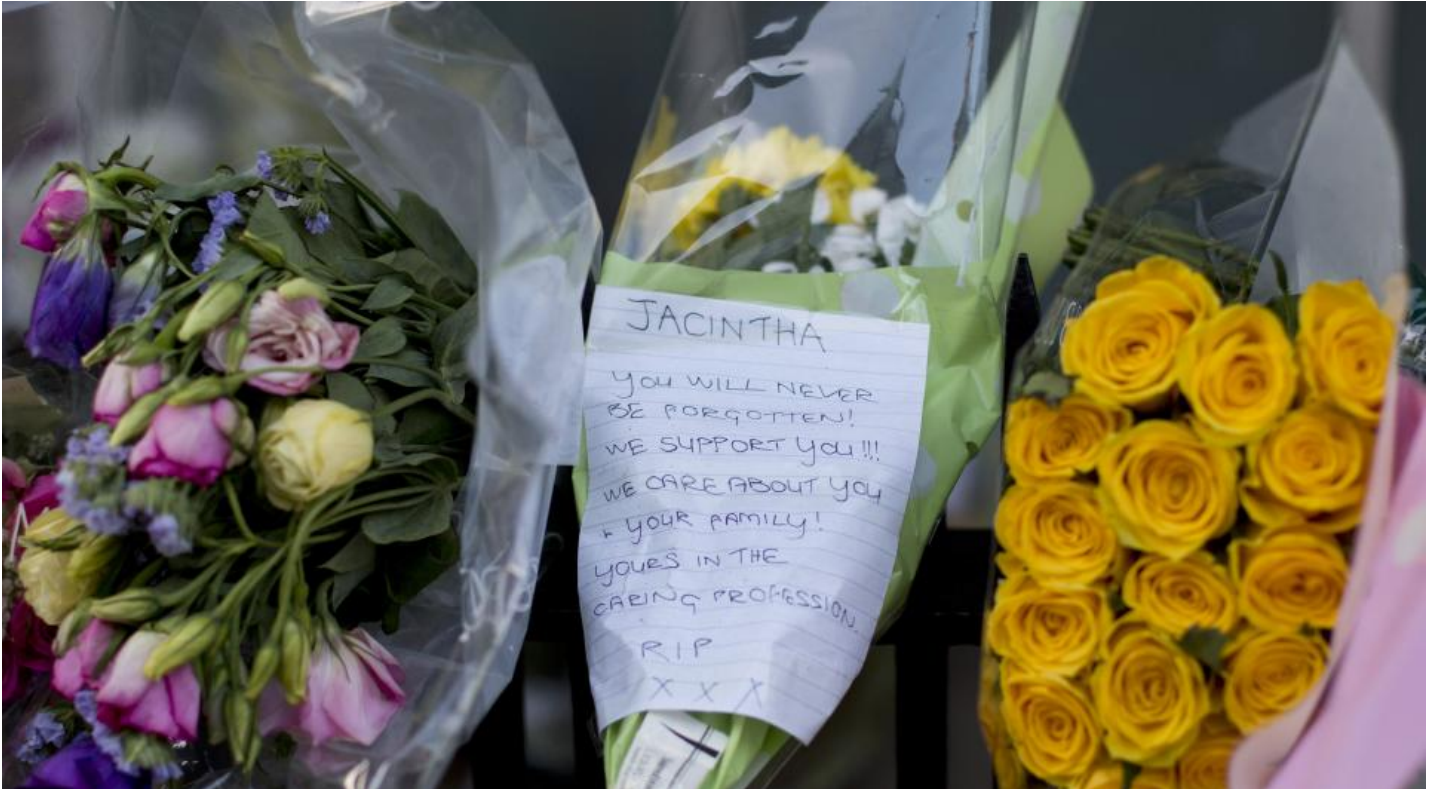 JACINTHA
YOU WILL NEVER
BE FORGOTTEN!
WE SUPPORT YOU!!!
WE CARE ABOUT YOU
& YOUR FAMILY!
YOURS IN THE
CARING PROFESSION.
RIP
X X X